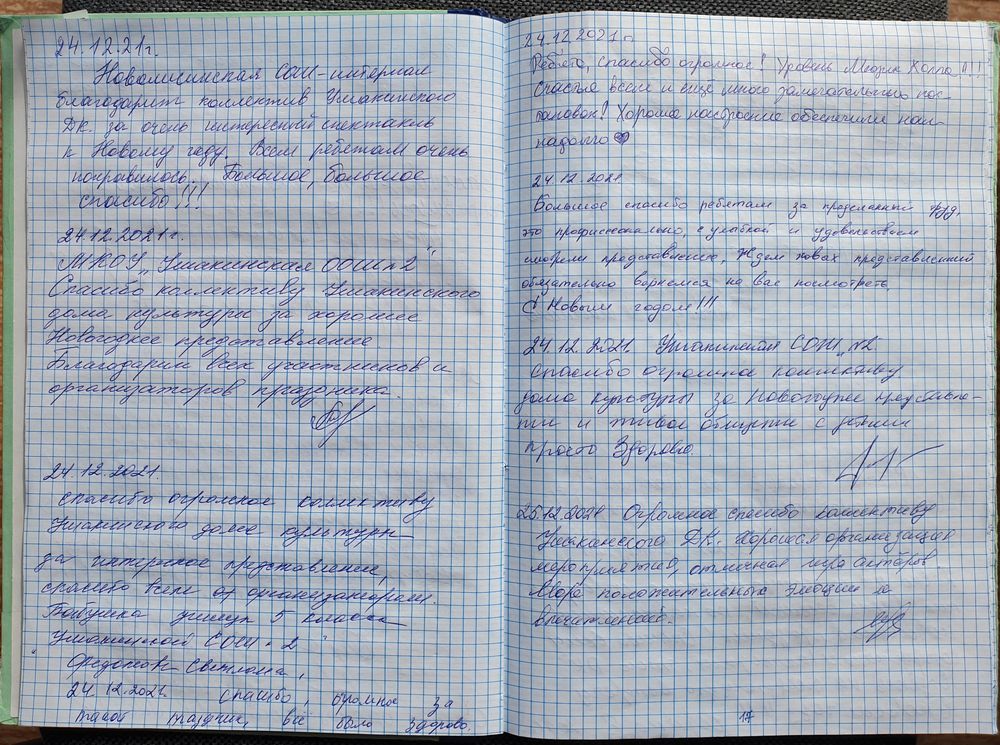 24.12.21г.
Новолисинская СОШ-интернат
благодарит коллектив Ушакинского
ДК. за очень интересный спектакль
к Новому году. Всем ребятам очень
понравилось. Большое, большое
спасибо!!!
24.12.2021г.
МКОУ „Ушакинская ООШ №2"
Спасибо коллективу Ушакинского
дома культуры за хорошее
Новогоднее представление.
Благодарим всех участников и
организаторов праздника.
24.12.2021.
Спасибо огромное коллективу
Ушакинского дома культуры
за интересное представление,
спасибо всем организаторам.
Бабушка 5 класса
Ушакинской СОШ - 2"
Светлана,
24.12.2021. спасибо, огромное за
такой праздник, всё было здорово.
24.12.2021г.
Ребята, спасибо огромное! Уровень Мюзик Холла!!!!
Счастья всем и ещё много замечательных пос-
тановок! Хорошее настроение обеспечили нам
надолго ♥
24.12.2021
Большое спасибо ребятам за проделанный труд,
это профессионально, с улыбкой и удовольствием
смотрели представление, Ждем новых представлений
обязательно вернемся на вас посмотреть.
С Новым годом!!!
24.12.2021. Ушакинская СОШ №2"
Спасибо огромное коллективу
дома культуры за Новогоднее представле-
ние и живое общение с детьми
просто Здорово.
25.12.2021 Огромное спасибо коллективу
Ушакинского ДК. Хорошая организация
мероприятия, отличная игра актёров.
Море положительных эмоций и
впечатлений.
17